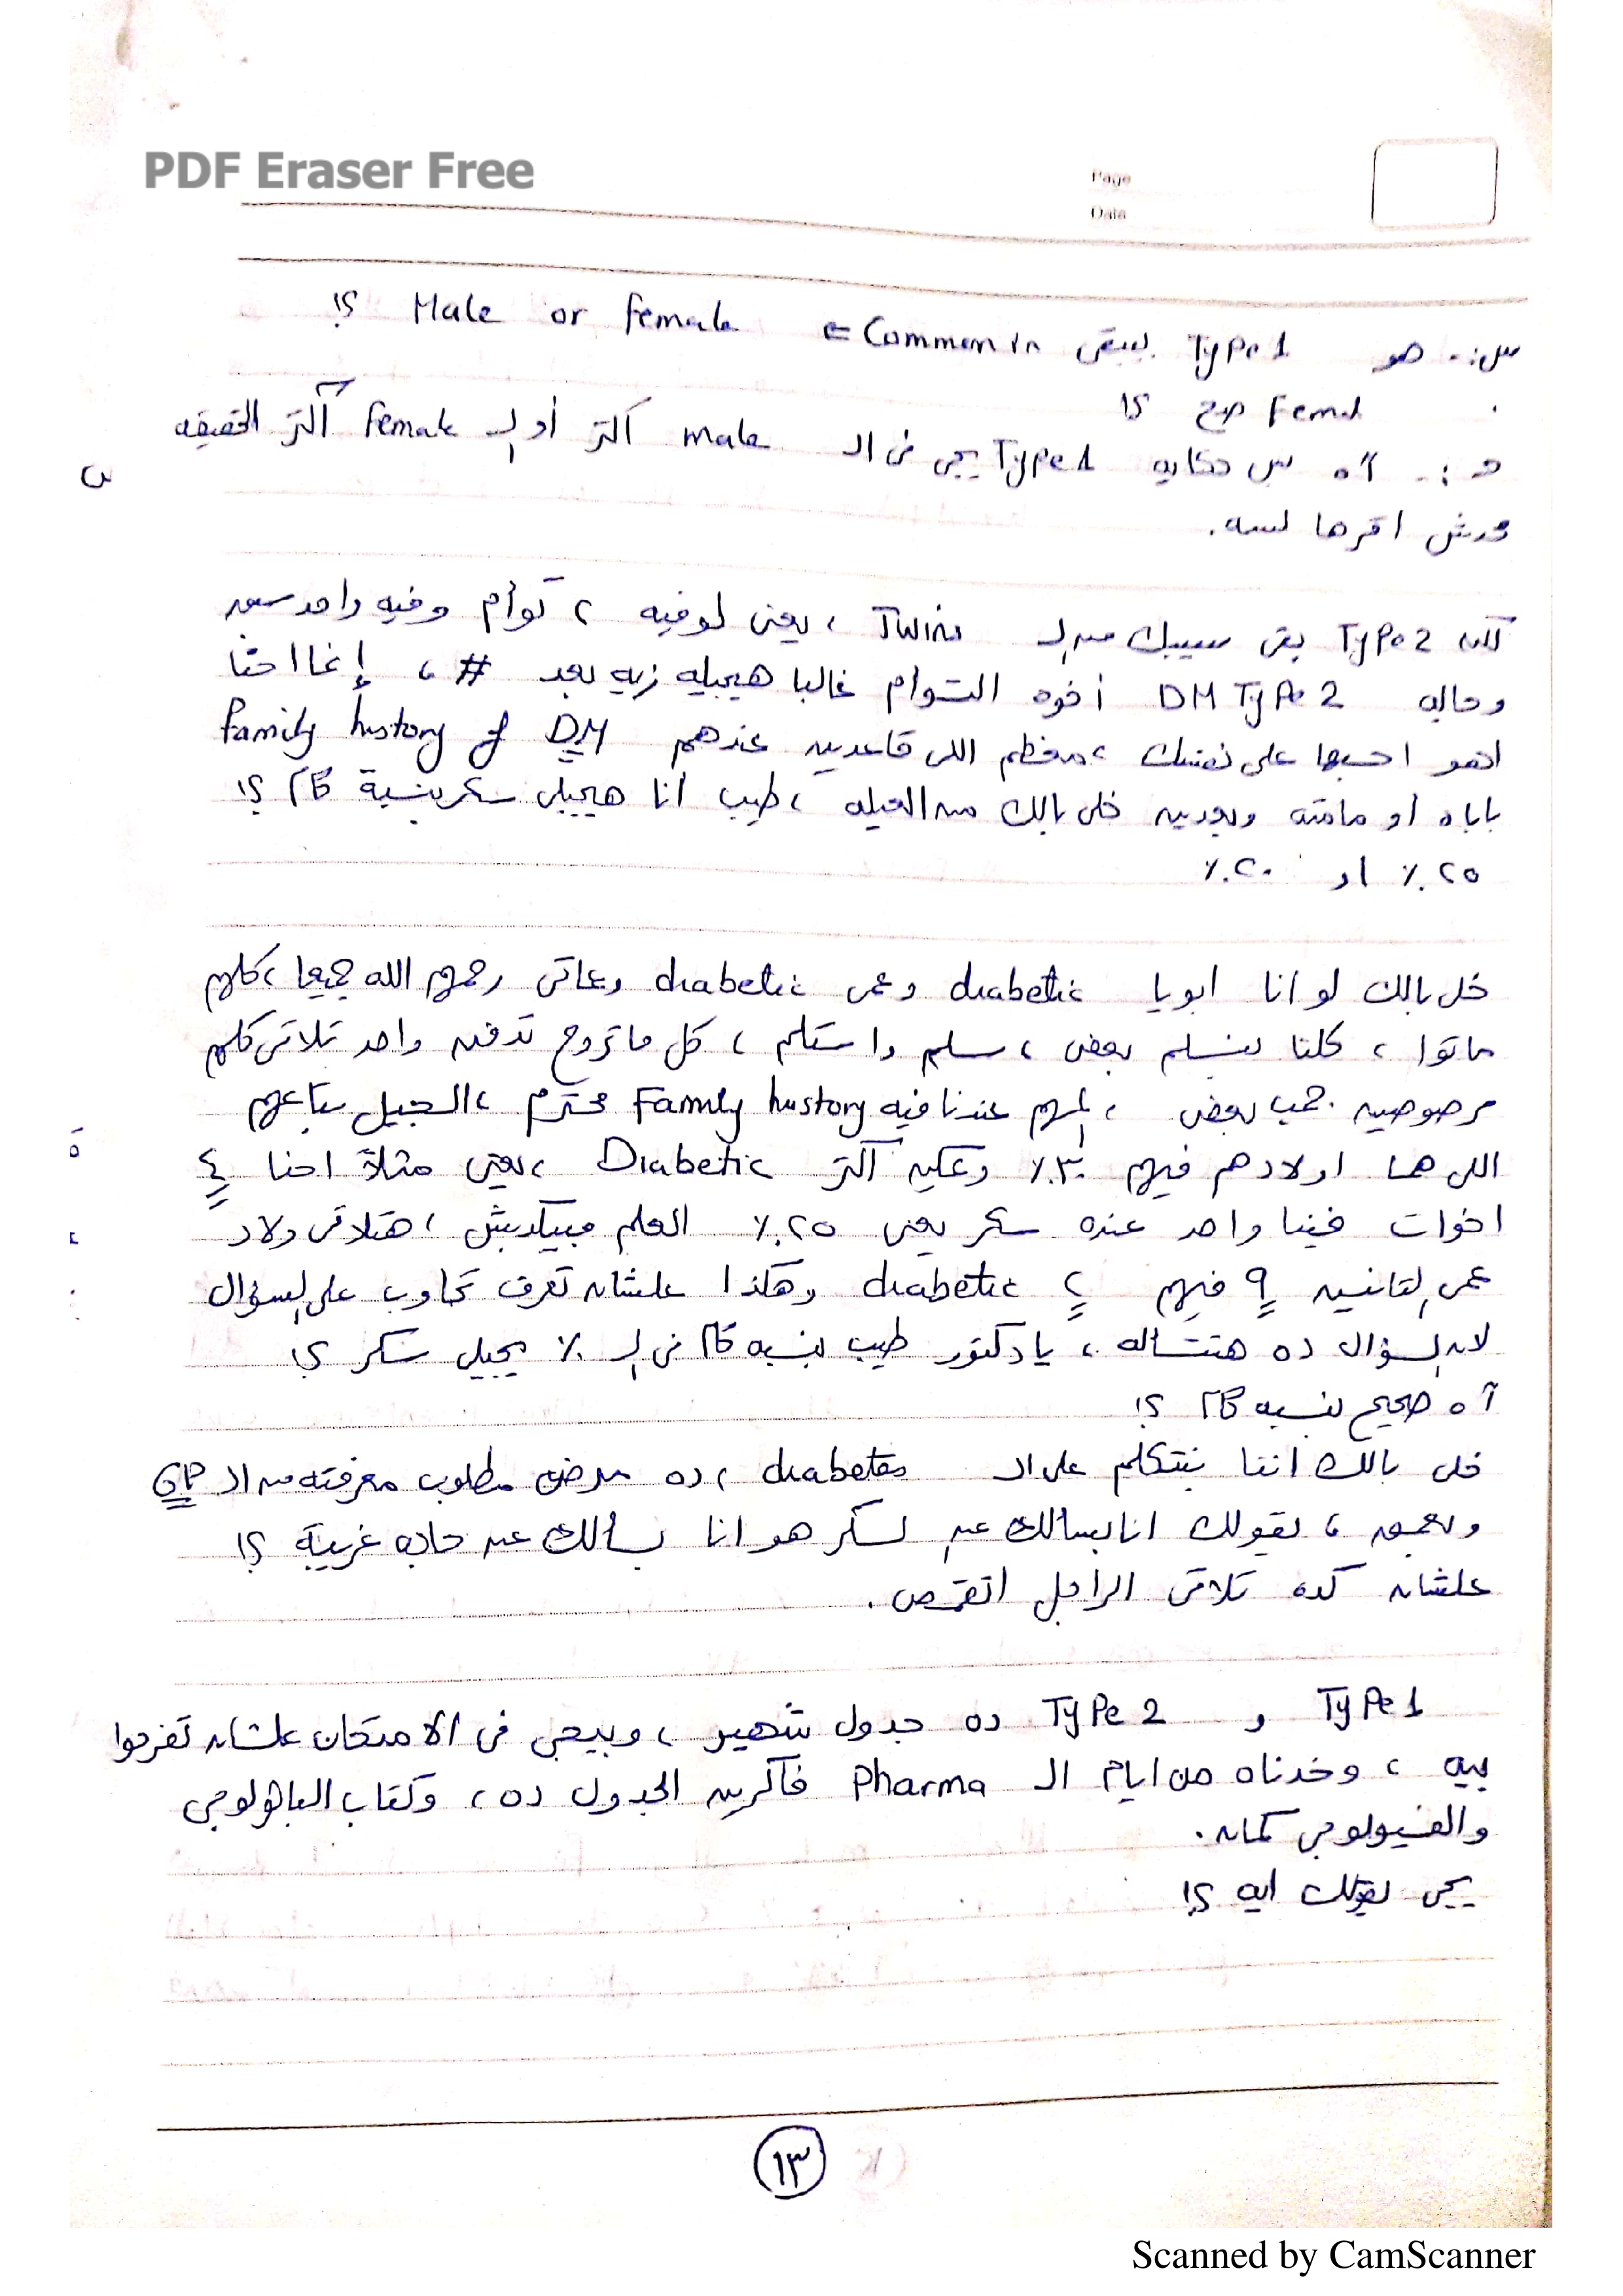 PDF Eraser Free
Page
Date
س:- هو Type 1 بيبقى Common in ⇐ Male or Female ؟!
Femal صح ؟!
د :- آه بس حكاية Type 1 يجى فى الـ male أكتر أو الـ Female أكتر الحقيقه
مش اقرها لسه.
لكن Type 2 بقى سيبك من الـ Twins ، يعنى لو فيه توأم وفيه واحد
وجاله DM Type 2 أخوه التوأم غالبا هيجيله زيه بعد # ، إنما احنا
اهو احسبها على نفسك ، معظم اللى قاعدين عندهم Family history of DM
باباه او مامته وبعدين خلى بالك من العيله ، طيب أنا هيجيلى سكر بنسبة كام ؟!
٢٥٪ او ٢٠٪
خلى بالك لو انا ابويا diabetic وعمى diabetic وعماتى رحمهم الله جميعا ، كلهم
ماتوا ، كلنا بنسلم بعض ، سلم واستلم ، كل ما تروح تدفن واحد تلاقى كلهم
مرصوصين جمب بعض ، المهم عندنا فيه Family history محترم ، الجيل بتاعهم
اللى هما اولادهم فيهم ٣٠٪ وعكين أكتر Diabetic ، يعنى مثلاً احنا ٤
اخوات فينا واحد عنده سكر يعنى ٢٥٪ العلم مبيكدبش ، هتلاقى ولاد
عمى التانيين ٩ فيهم ٢ diabetic وهكذا علشان تعرف تجاوب على السؤال
لان السؤال ده هتتسأله ، يا دكتور طيب بنسبه كام فى الـ ٪ يجيلى سكر ؟!
آه صحيح بنسبه كام ؟!
خلى بالك اننا بنتكلم على الـ diabetes ، ده مرض مطلوب معرفته من الـ GP
وبعمق ، يقولك انا بسالك عن السكر هو انا بسألك عن حاجه غريبة ؟!
علشان كده تلاقى الراجل اتقمص .
Type 1 و Type 2 ده جدول شهير ، وبيجى فى الامتحان علشان تفرحوا
بيه ، وخدناه من ايام الـ Pharma فاكرين الجدول ده ، وكتاب الباثولوجى
والفسيولوجى كمان .
يجى يقولك ايه ؟!
١٣
Scanned by CamScanner